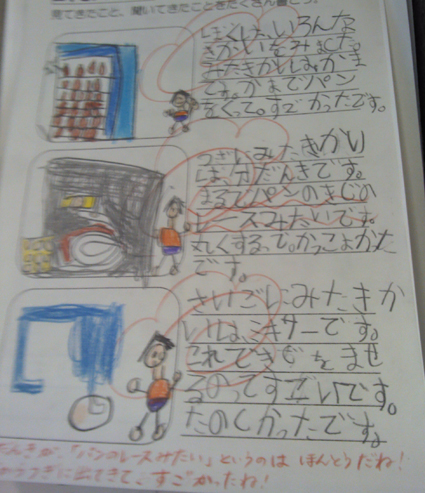 見てきたこと、聞いてきたことをたくさん書こう。
ぼくは、いろんな
きかいをみました。
みたきかいはかま
です。かまでパン
をくって。すごかったです。
つぎにみたきかい
は、分だんきです。
まるでパンのきじの
レースみたいです。
丸くする、で。かっこよかた
です。
さいごにみたきか
いは、ミキサーです。
これできじをませ
るのってすごいです。
たのしかったです。
だんきが、「パンのレースみたい」というのは ほんとうだね!
からつぎに出てきて、すごかったね!